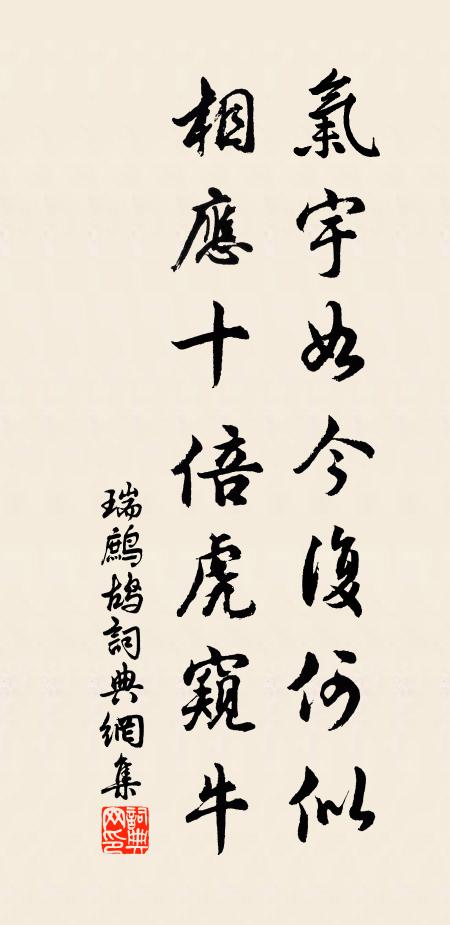 氣宇如今復何似
相應十倍虎窺牛
瑞鷓鴣詞典網集
詞典
网印